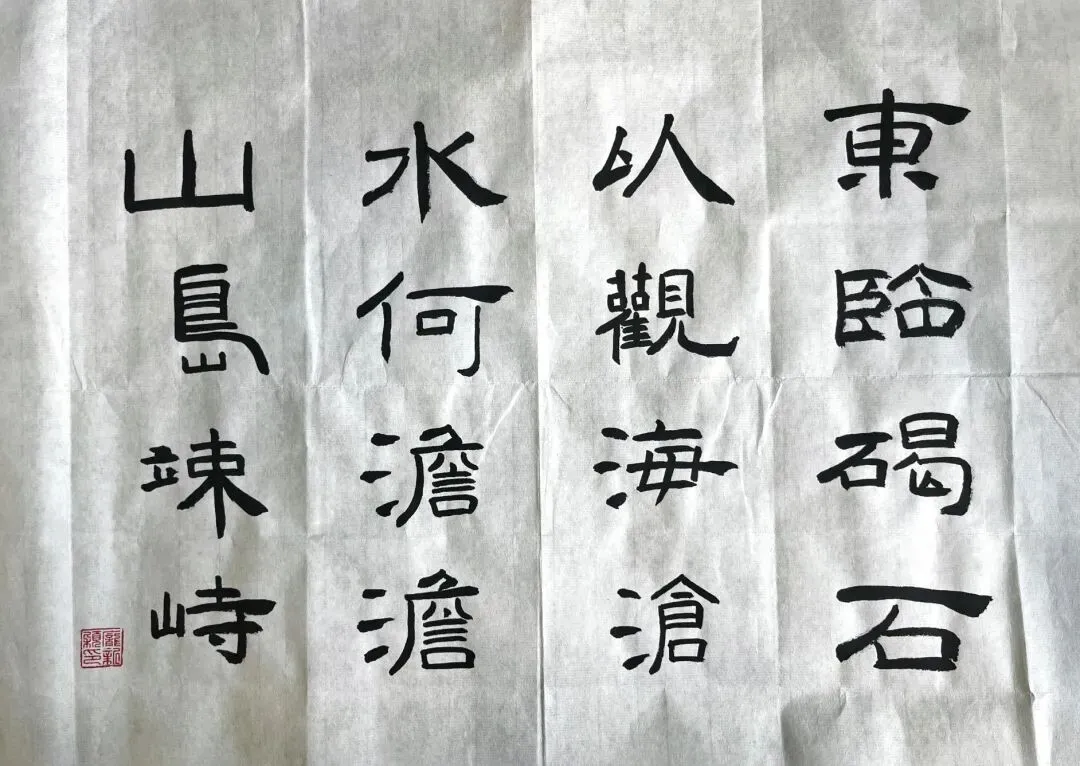 東臨碣石
以觀海滄
水何澹澹
山島竦峙